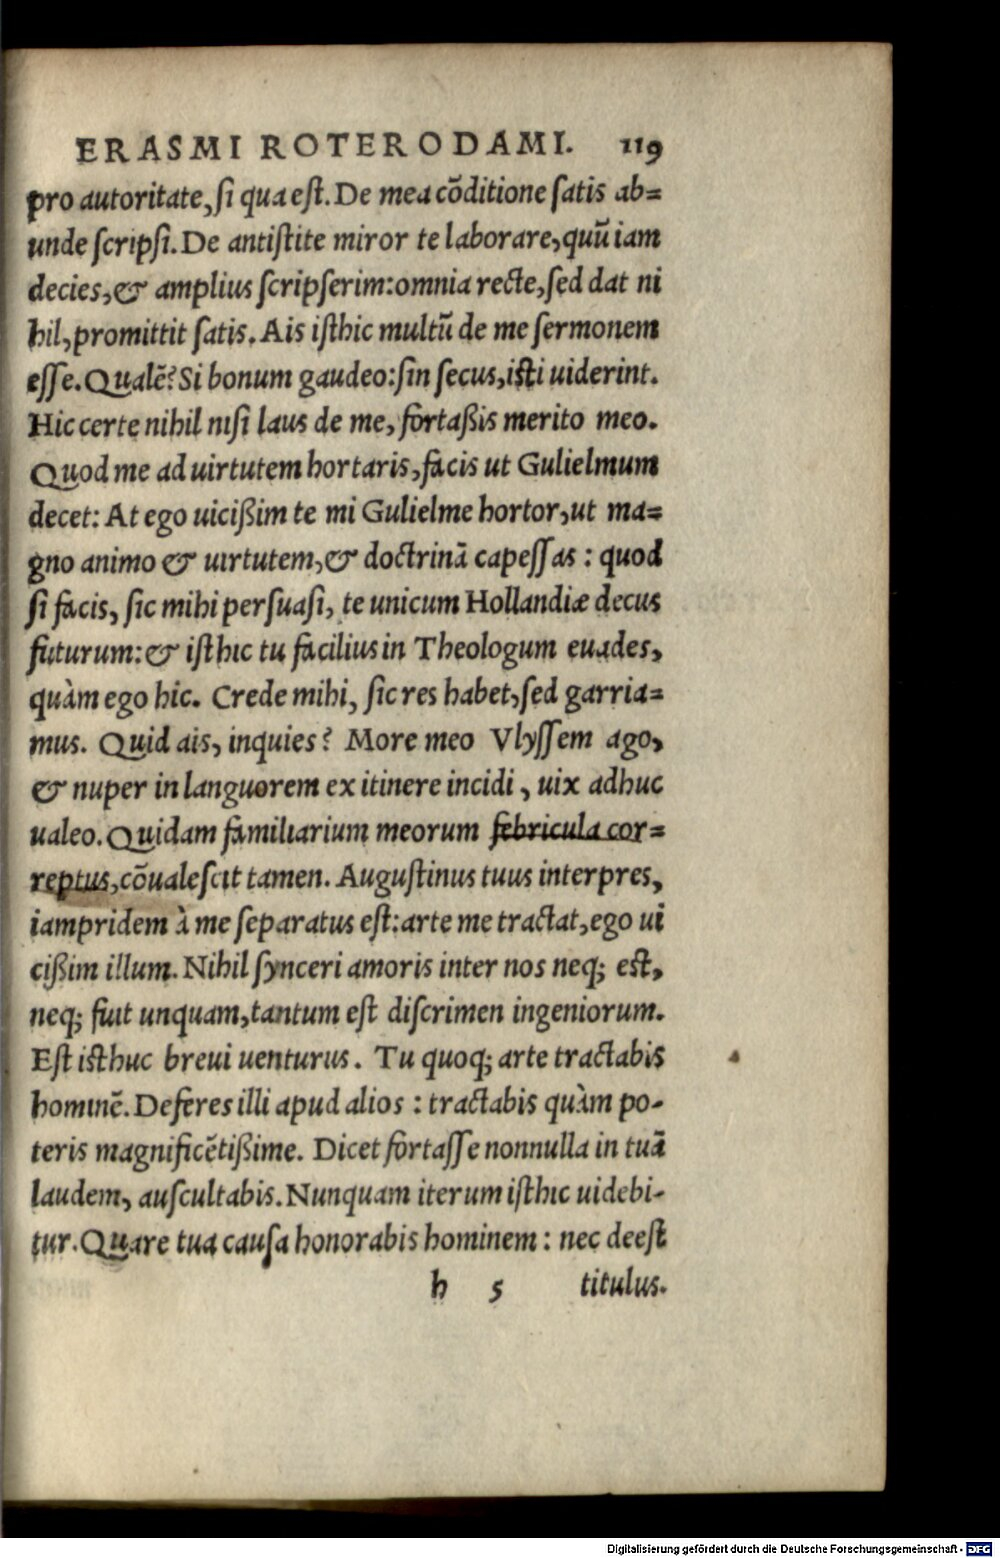 ERASMI ROTERODAMI. 119
pro autoritate, ſi qua eſt. De mea cõditione ſatis ab=
unde ſcripſi. De antiſtite miror te laborare, quũ iam
decies, & amplius ſcripſerim: omnia recte, ſed dat ni
hil, promittit ſatis. Ais iſthic multũ de me ſermonem
eſſe. Qualẽ? Si bonum gaudeo: ſin ſecus, iſti uiderint.
Hic certe nihil niſi laus de me, fortaßis merito meo.
Quod me ad uirtutem hortaris, facis ut Gulielmum
decet: At ego uicißim te mi Gulielme hortor, ut ma=
gno animo & uirtutem, & doctrinã capeſſas : quod
ſi facis, ſic mihi perſuaſi, te unicum Hollandiæ decus
futurum: & iſthic tu facilius in Theologum euades,
quàm ego hic. Crede mihi, ſic res habet, ſed garria=
mus. Quid ais, inquies? More meo Vlyſſem ago,
& nuper in languorem ex itinere incidi, uix adhuc
ualeo. Quidam familiarium meorum febricula cor=
reptus, cõualeſcit tamen. Auguſtinus tuus interpres,
iampridem à me ſeparatus eſt: arte me tractat, ego ui
cißim illum. Nihil ſynceri amoris inter nos neq; eſt,
neq; fuit unquam, tantum eſt diſcrimen ingeniorum.
Eſt iſthuc breui uenturus. Tu quoq; arte tractabis
hominẽ. Deferes illi apud alios : tractabis quàm po-
teris magnificẽtißime. Dicet fortaſſe nonnulla in tuã
laudem, auſcultabis. Nunquam iterum iſthic uidebi-
tur. Quare tua cauſa honorabis hominem : nec deeſt
h 5 titulus.
Digitalisierung gefördert durch die Deutsche Forschungsgemeinschaft - DFG